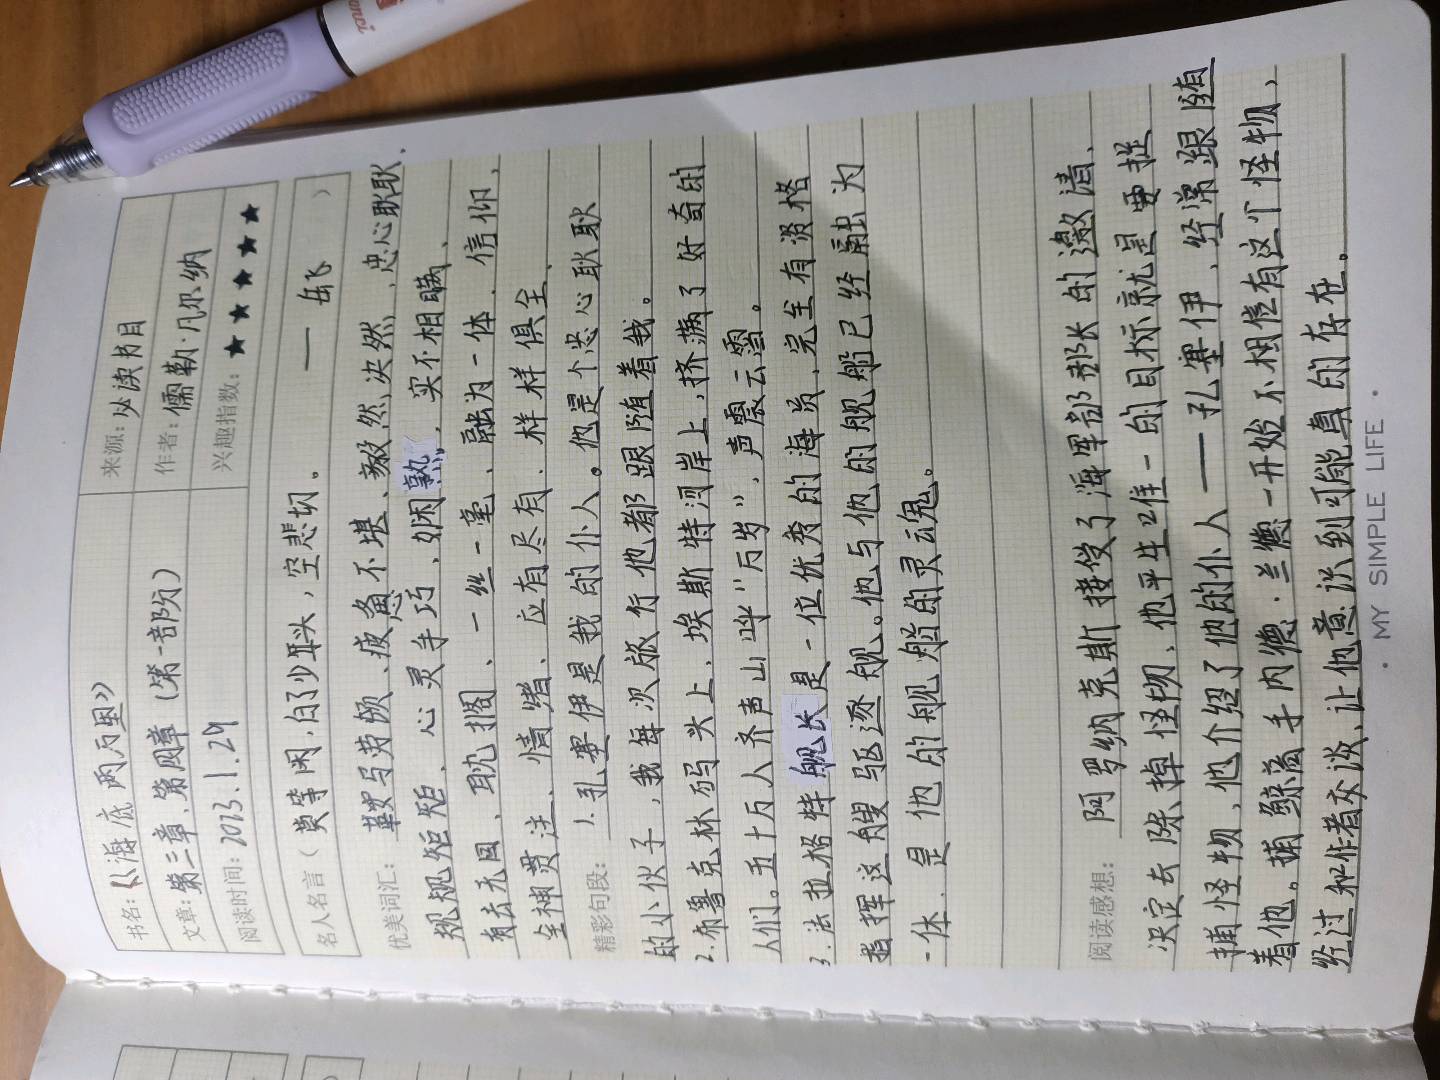 书名：《海底两万里》
来源：必读书目
文章：第三章、第四章（第一部分）
作者：儒勒·凡尔纳
阅读时间：2023.1.29
兴趣指数：★★★★★
名人名言（莫等闲，白了少年头，空悲切。——岳飞）
优美词汇：鞍马劳顿、疲惫不堪、毅然决然、忠心耿耿、
规规矩矩、心灵手巧、娴熟、实不相瞒、
有去无回、耽搁、一丝一毫、融为一体、信仰、
全神贯注、情绪、应有尽有、样样俱全、
精彩句段：1.孔塞伊是我的仆人。他是个忠心耿耿
的小伙子，我每次旅行他都跟随着我。
2.布鲁克林码头上、埃斯特河岸上，挤满了好奇的
人们。五十万人齐声山呼“万岁”，声震云霄。
3.法拉格特舰长是一位优秀的海员，完全有资格
指挥这艘驱逐舰。他与他的舰船已经融为
一体，是他的舰船的灵魂。
阅读感想：阿罗纳克斯接受了海军部部长的邀请，
决定去除掉怪物，他平生唯一的目标就是要捉
捕怪物，他介绍了他的仆人——孔塞伊，经常跟随
着他。捕鲸高手内德·兰德一开始不相信有这个怪物，
经过和作者交谈，让他意识到可能真的存在。
· MY SIMPLE LIFE ·